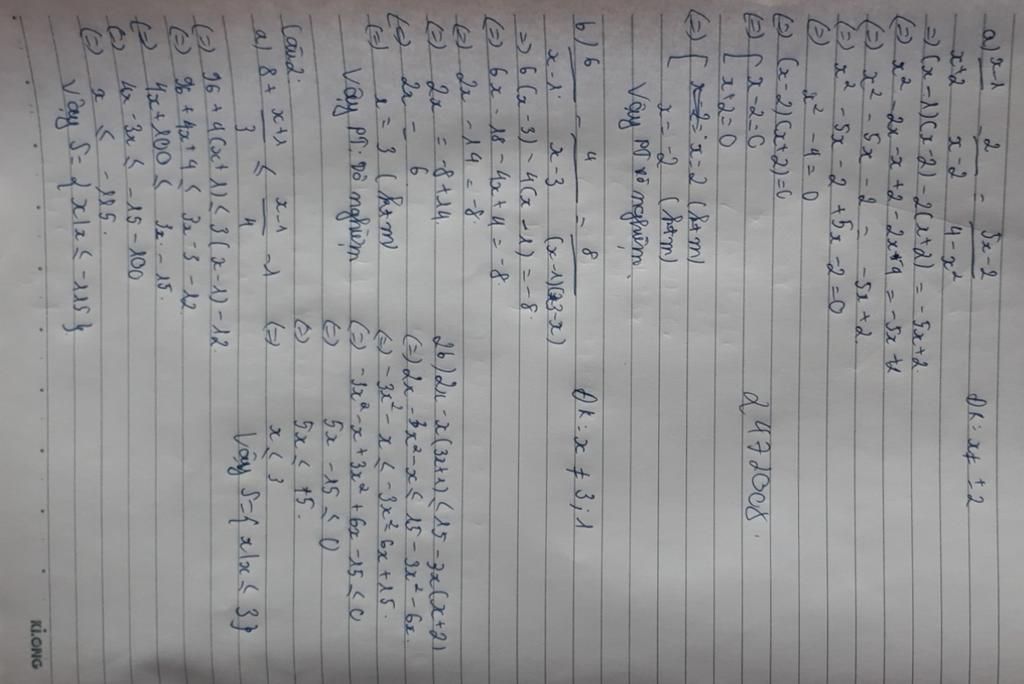 a) x-1/x+2 - 2/x-2 = 5x-2/4-x² Đk: x ≠ ±2
=) (x-1)(x-2) - 2(x+2) = -5x+2
(=) x² - 2x - x + 2 - 2x - 4 = -5x+2
(=) x² - 5x - 2 = -5x+2
(=) x² - 5x - 2 + 5x - 2 = 0
(=) x² - 4 = 0
(=) (x-2)(x+2) = 0
(=) [ x-2=0
x+2=0
(=) [ x = 2 (ktm)
x = -2 (ktm)
Vậy pt vô nghiệm.
2472008.
b) 6/x-1 - 4/x-3 = 8/(x-1)(3-x) Đk: x ≠ 3; 1
=) 6(x-3) - 4(x-1) = -8
(=) 6x - 18 - 4x + 4 = -8
(=) 2x - 14 = -8
(=) 2x = -8+14
(=) 2x = 6
(=) x = 3 (ktm)
Vậy pt vô nghiệm
Câu 2
a) 8 + x+1/3 ≤ x-1/4 - 1
(=) 96 + 4(x+1) ≤ 3(x-1) - 12
(=) 96 + 4x+4 ≤ 3x-3-12
(=) 4x+100 ≤ 3x-15
(=) 4x-3x ≤ -15-100
(=) x ≤ -115.
Vậy S = { x|x ≤ -115 }
2b) 2x - x(3x+1) ≤ 15 - 3x(x+2)
(=) 2x - 3x² - x ≤ 15 - 3x² - 6x
(=) -3x² - x ≤ -3x² 6x + 15
(=) -3x² - x + 3x² + 6x - 15 ≤ 0
(=) 5x - 15 ≤ 0
(=) 5x ≤ 15.
(=) x ≤ 3
Vậy S = { x|x ≤ 3 }
KLONG